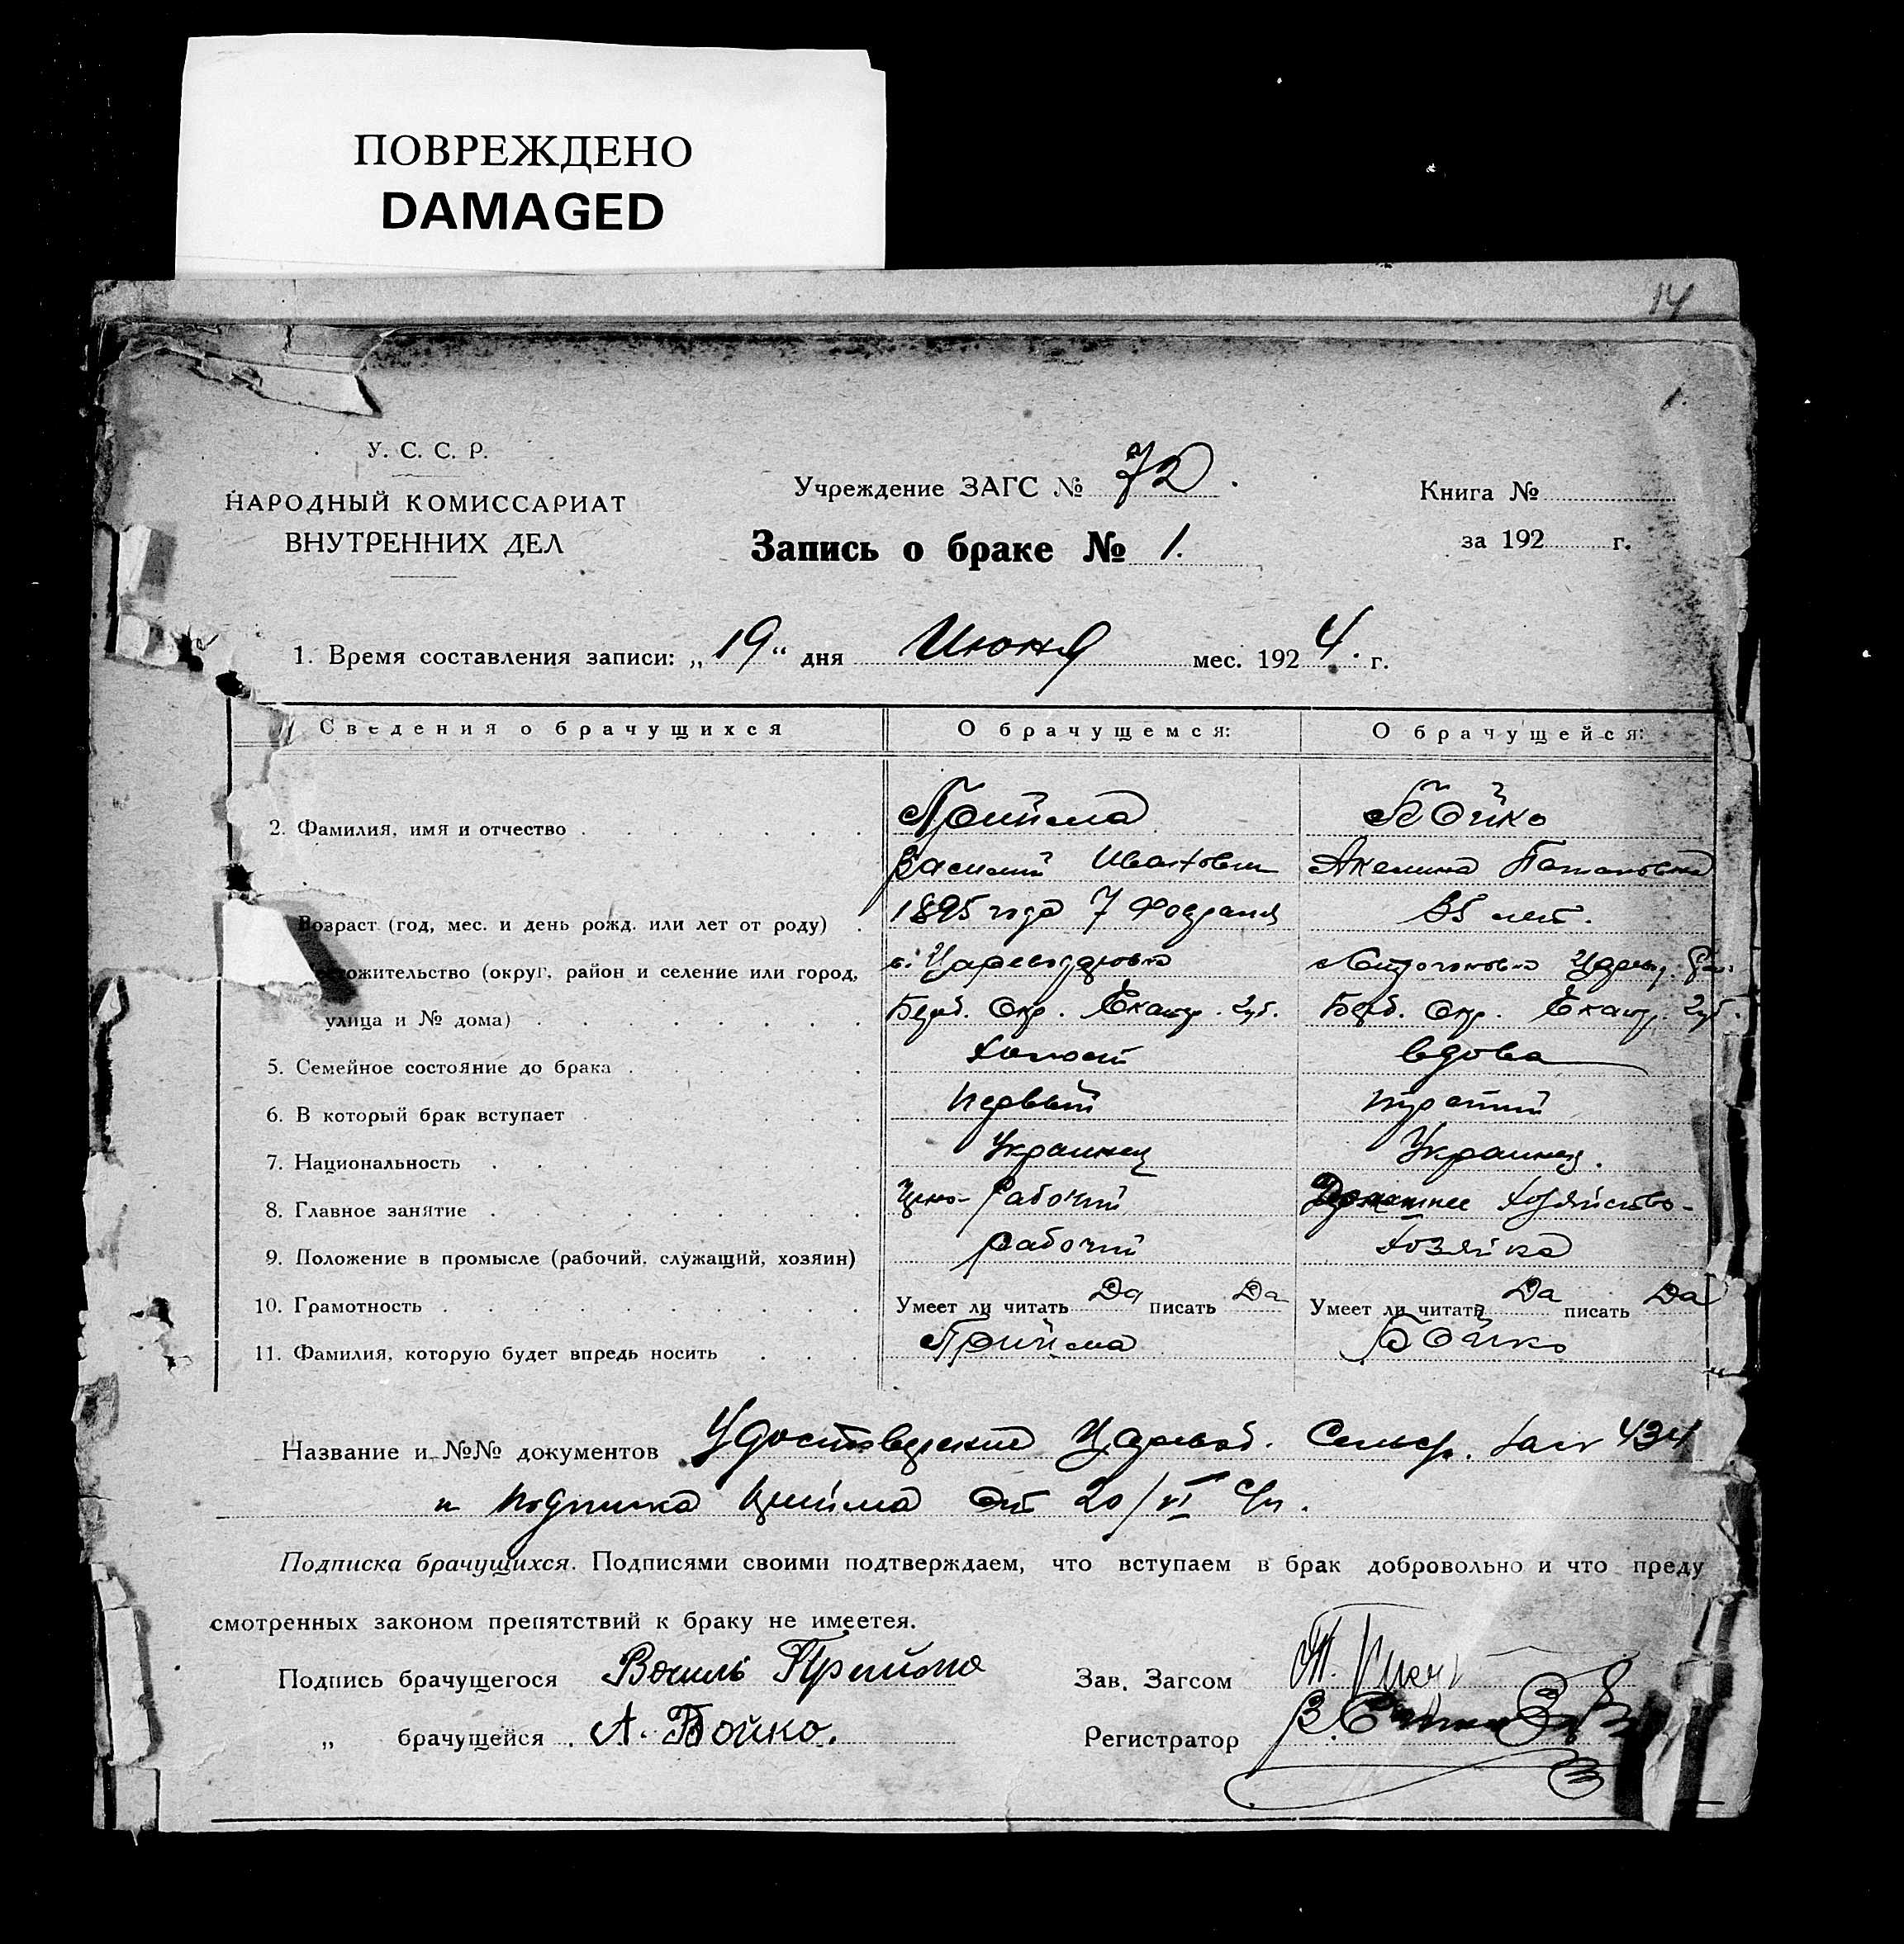 ПОВРЕЖДЕНО
DAMAGED
14
1.
У. С. С. Р.
НАРОДНЫЙ КОМИССАРИАТ
ВНУТРЕННИХ ДЕЛ
Учреждение ЗАГС № 72.
Книга №
Запись о браке № 1.
за 192 г.
1. Время составления записи: „19“ дня Июня мес. 1924. г.
Сведения о брачущихся О брачущемся: О брачущейся:
2. Фамилия, имя и отчество Прийма Бойко
Василий Иванович Акелина Потаповна
Возраст (год, мес. и день рожд. или лет от роду) 1895 года 7 Февраля 35 лет.
ожительство (округ, район и селение или город,
улица и № дома) Берд. Окр. Екатер. губ. Берд. Окр. Екатер. губ.
5. Семейное состояние до брака холост вдова
6. В который брак вступает первый третий
7. Национальность Украинец Украинка.
8. Главное занятие рабочий Домашнее хозяйство
9. Положение в промысле (рабочий, служащий, хозяин) рабочий хозяйка
10. Грамотность Умеет ли читать Да писать Да Умеет ли читать Да писать Да
11. Фамилия, которую будет впредь носить Прийма Бойко
Название и №№ документов Удостоверение Царевод. Сельср. 434
и подписка Прийма от 20/VI с/г.
Подписка брачущихся. Подписями своими подтверждаем, что вступаем в брак добровольно и что преду
смотренных законом препятствий к браку не имеетея.
Подпись брачущегося Василь Прийма Зав. Загсом
„ брачущейся А. Бойко. Регистратор